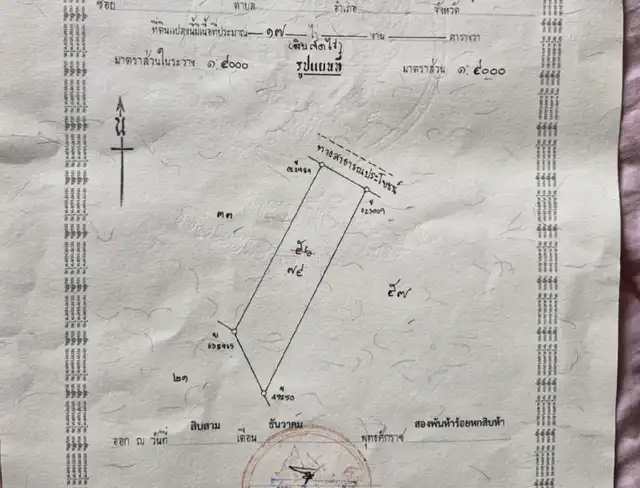 ซอย ตำบล อำเภอ จังหวัด
ที่ดินแปลงนี้มีเนื้อที่ประมาณ ๑๗ ไร่ งาน ตารางวา
(สิบเจ็ดไร่)
มาตราส่วนในระวาง ๑:๔๐๐๐ รูปแผนที่ มาตราส่วน ๑:๔๐๐๐
น
ทางสาธารณประโยชน์
๓๓
๗๔
๕๗
๒๑
ออก ณ วันที่ สิบสาม เดือน ธันวาคม พุทธศักราช สองพันห้าร้อยหกสิบห้า